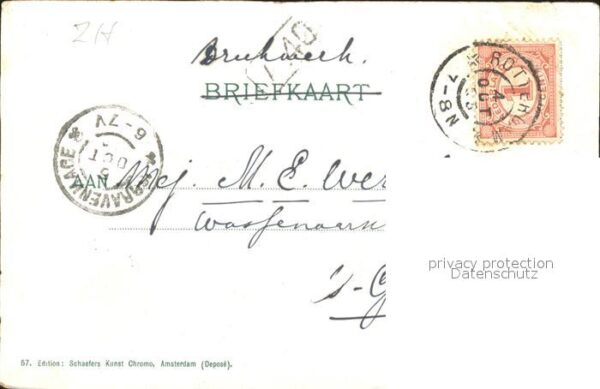 ZH
Drukwerk.
L40
BRIEFKAART
ROTTERD
4 OCT
7-8N
6-7V
'SGRAVENHAGE
5 OCT
AAN Mej. M. E. Wer
Wassenaar
's-G
privacy protection
Datenschutz
57. Edition: Schaefers Kunst Chromo, Amsterdam (Deposé).